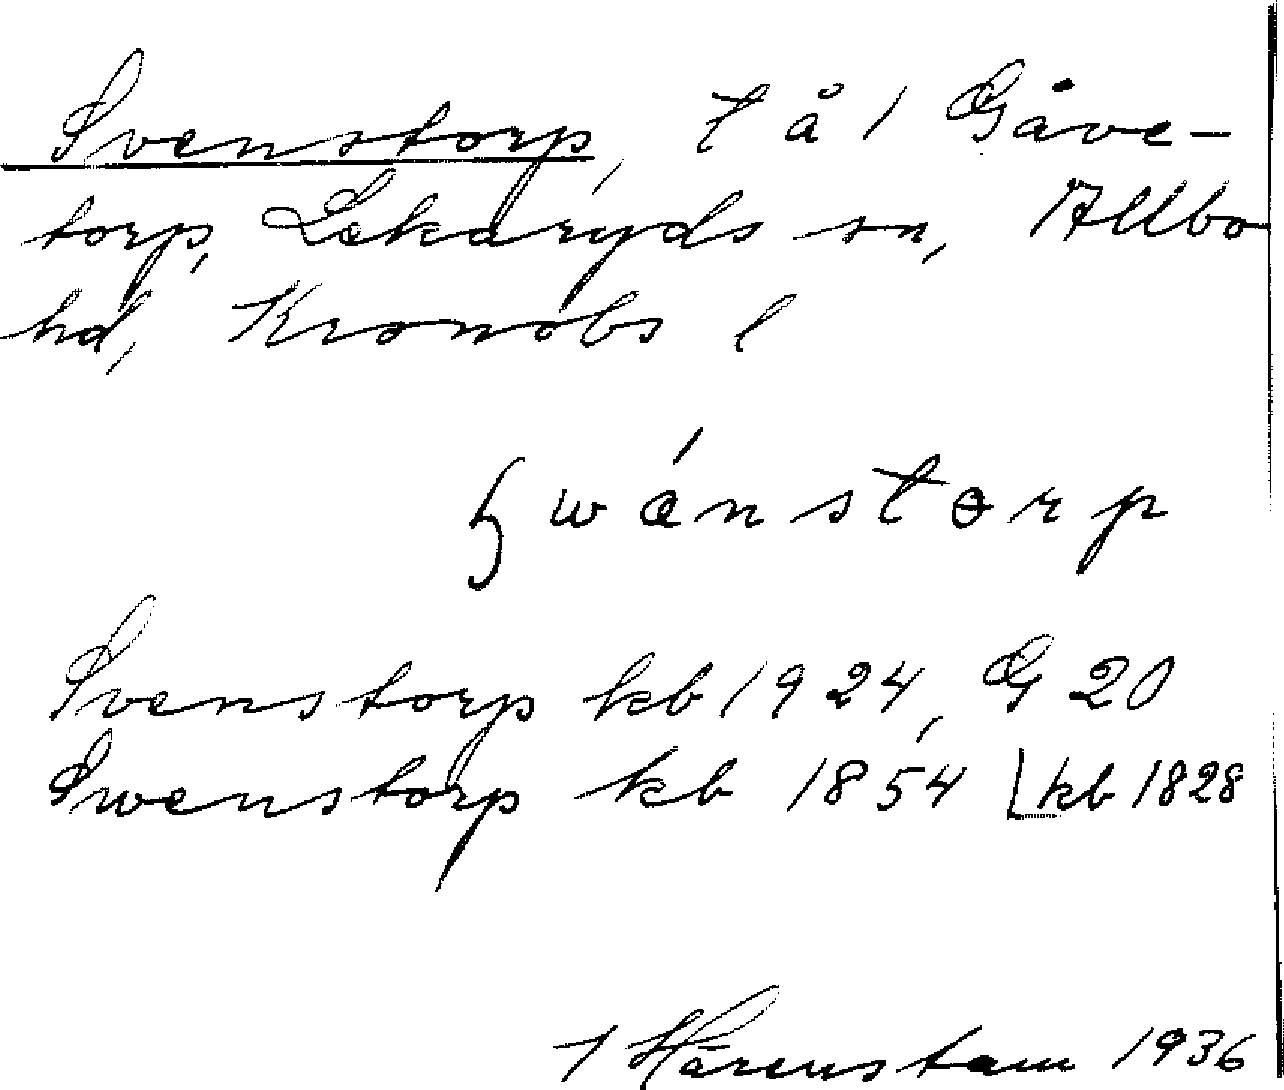 Svenstorp, t å 1 Gåve-
torp, Lekaryds sn, Allbo
hd, Kronobs l
swánstorp
Svenstorp kb 1924, G 20
Swenstorp kb 1854 kb 1828
I Härenstam 1936